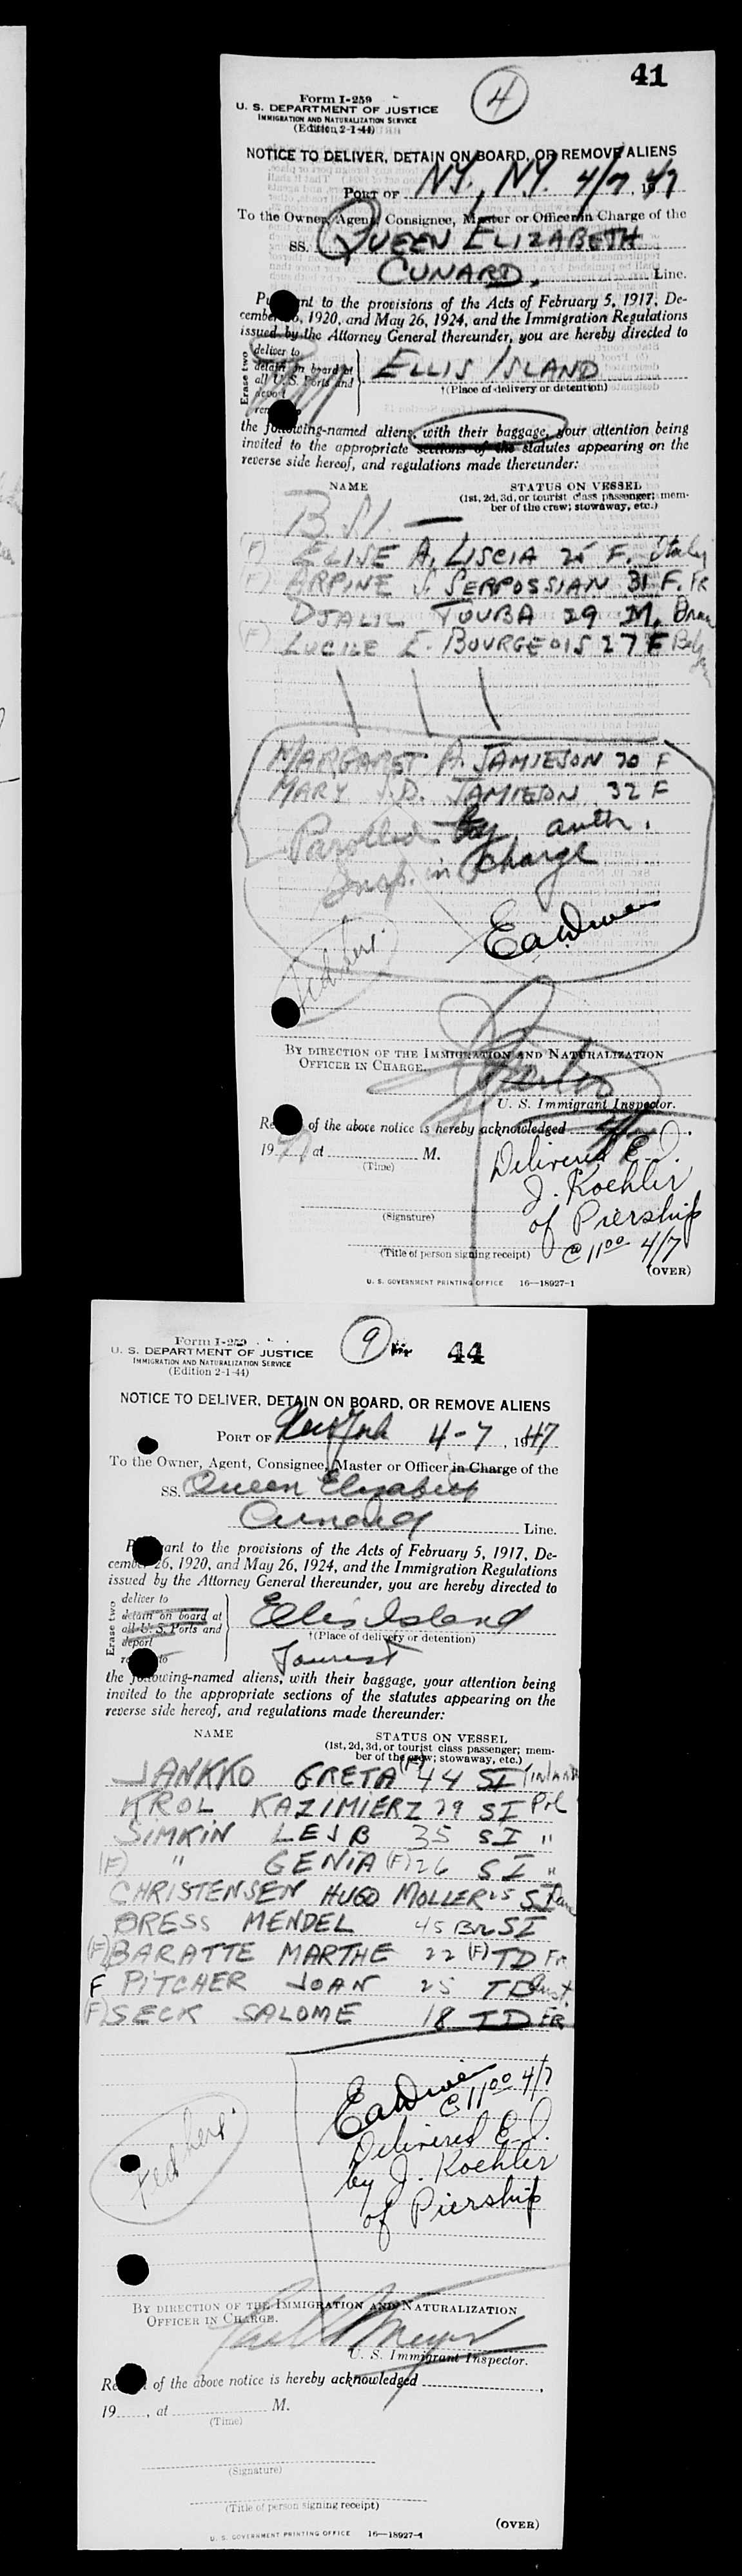 41
4
Form I-259
U. S. DEPARTMENT OF JUSTICE
IMMIGRATION AND NATURALIZATION SERVICE
(Edition 2-1-44)
NOTICE TO DELIVER, DETAIN ON BOARD, OR REMOVE ALIENS
PORT OF N.Y., N.Y. 4/7, 1947
To the Owner, Agent, Consignee, Master or Officer in Charge of the
SS. QUEEN ELIZABETH
CUNARD, Line.
nt to the provisions of the Acts of February 5, 1917, De-
cember 26, 1920, and May 26, 1924, and the Immigration Regulations
issued by the Attorney General thereunder, you are hereby directed to
Erase two
deliver to
detain on board at
all U. S. Ports and
deport
ELLIS ISLAND
†(Place of delivery or detention)
the following-named aliens, with their baggage, your attention being
invited to the appropriate sections of the statutes appearing on the
reverse side hereof, and regulations made thereunder:
NAME STATUS ON VESSEL
(1st, 2d, 3d, or tourist class passenger; mem-
ber of the crew; stowaway, etc.)
B.S.I —
(F) ELISE A. LISCIA 25 F. Italy
(F) ARPINE J. SERPOSSIAN 31 F. FR
DJALIL TOUBA 29 M.
(F) LUCILE E. BOURGEOIS 27 F
MARGARET A. JAMIESON 70 F
MARY J.D. JAMIESON 32 F
Parolled by auth.
Insp. in Charge
BY DIRECTION OF THE IMMIGRATION AND NATURALIZATION
OFFICER IN CHARGE.
U. S. Immigrant Inspector.
of the above notice is hereby acknowledged 4/7,
1947 at M.
(Time)
Delivered E.I.
J. Koehler
of Piership
@ 11:00 4/7
(Signature)
(Title of person signing receipt)
(OVER)
U. S. GOVERNMENT PRINTING OFFICE 16—18927-1
Form I-259
9 44
U. S. DEPARTMENT OF JUSTICE
IMMIGRATION AND NATURALIZATION SERVICE
(Edition 2-1-44)
NOTICE TO DELIVER, DETAIN ON BOARD, OR REMOVE ALIENS
PORT OF New York 4-7, 1947
To the Owner, Agent, Consignee, Master or Officer in Charge of the
SS. Queen Elizabeth
Cunard Line.
ant to the provisions of the Acts of February 5, 1917, De-
cember 26, 1920, and May 26, 1924, and the Immigration Regulations
issued by the Attorney General thereunder, you are hereby directed to
Erase two
deliver to
detain on board at
all U. S. Ports and
deport
Ellis Island
†(Place of delivery or detention)
Tourist
the following-named aliens, with their baggage, your attention being
invited to the appropriate sections of the statutes appearing on the
reverse side hereof, and regulations made thereunder:
NAME STATUS ON VESSEL
(1st, 2d, 3d, or tourist class passenger; mem-
ber of the crew; stowaway, etc.)
JANKKO GRETA (F) 44 SI Finland
KROL KAZIMIERZ 29 SI Pol
SIMKIN LEJB 35 SI "
(F) " GENIA (F) 26 SI "
CHRISTENSEN HUGO MOLLER 25 SI Dan
DRESS MENDEL 45 SI
(F) BARATTE MARTHE 22 (F) TD Fr
F PITCHER JOAN 25 TD Aust.
(F) SECK SALOME 18 TD FR
@ 11:00 4/7
Delivered E.I.
by J. Koehler
of Piership
BY DIRECTION OF THE IMMIGRATION AND NATURALIZATION
OFFICER IN CHARGE.
U. S. Immigrant Inspector.
of the above notice is hereby acknowledged ,
19 , at M.
(Time)
(Signature)
(Title of person signing receipt)
(OVER)
U. S. GOVERNMENT PRINTING OFFICE 16—18927-1